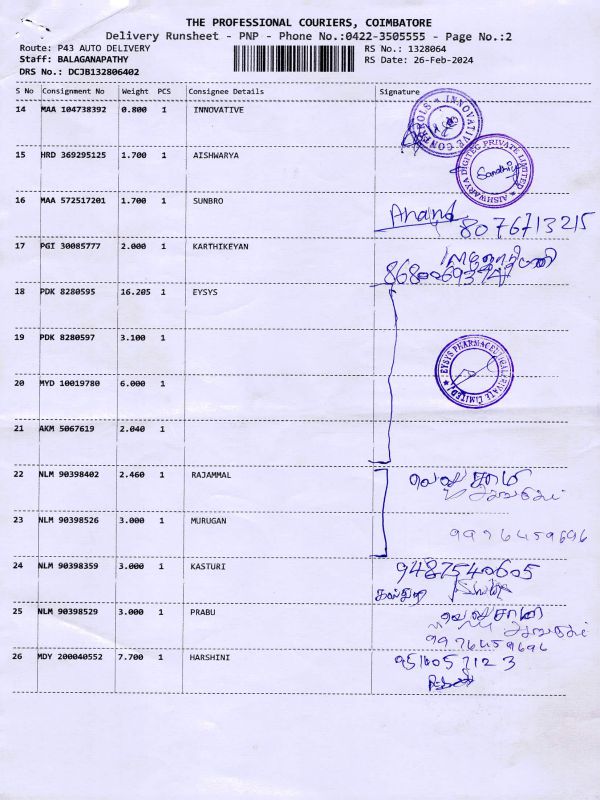 THE PROFESSIONAL COURIERS, COIMBATORE
Delivery Runsheet - PNP - Phone No.:0422-3505555 - Page No.:2
Route: P43 AUTO DELIVERY RS No.: 1328064
Staff: BALAGANAPATHY RS Date: 26-Feb-2024
DRS No.: DCJB132806402
S No Consignment No Weight PCS Consignee Details Signature
14 MAA 104738392 0.800 1 INNOVATIVE
15 HRD 369295125 1.700 1 AISHWARYA
AISHWARYA DIGITEC PRIVATE LIMITED
Sandhiya
16 MAA 572517201 1.700 1 SUNBRO Anand
8076713215
17 PGI 30085777 2.000 1 KARTHIKEYAN
18 PDK 8280595 16.205 1 EYSYS
19 PDK 8280597 3.100 1
EYSYS PHARMACEUTICAL PRIVATE LIMITED
20 MYD 10019780 6.000 1
21 AKM 5067619 2.040 1
22 NLM 90398402 2.460 1 RAJAMMAL
23 NLM 90398526 3.000 1 MURUGAN 9976459696
24 NLM 90398359 3.000 1 KASTURI 9487540605
25 NLM 90398529 3.000 1 PRABU
9976459696
26 MDY 200040552 7.700 1 HARSHINI